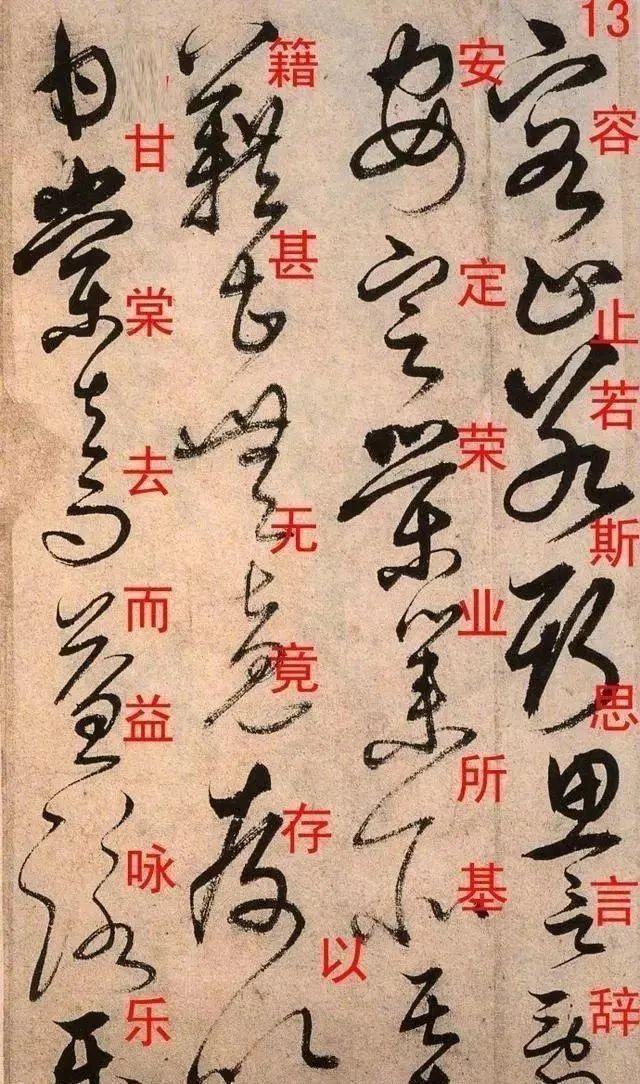 13
容止若斯思言辞
安定荣业所基
籍甚无竟存以
甘棠去而益咏乐